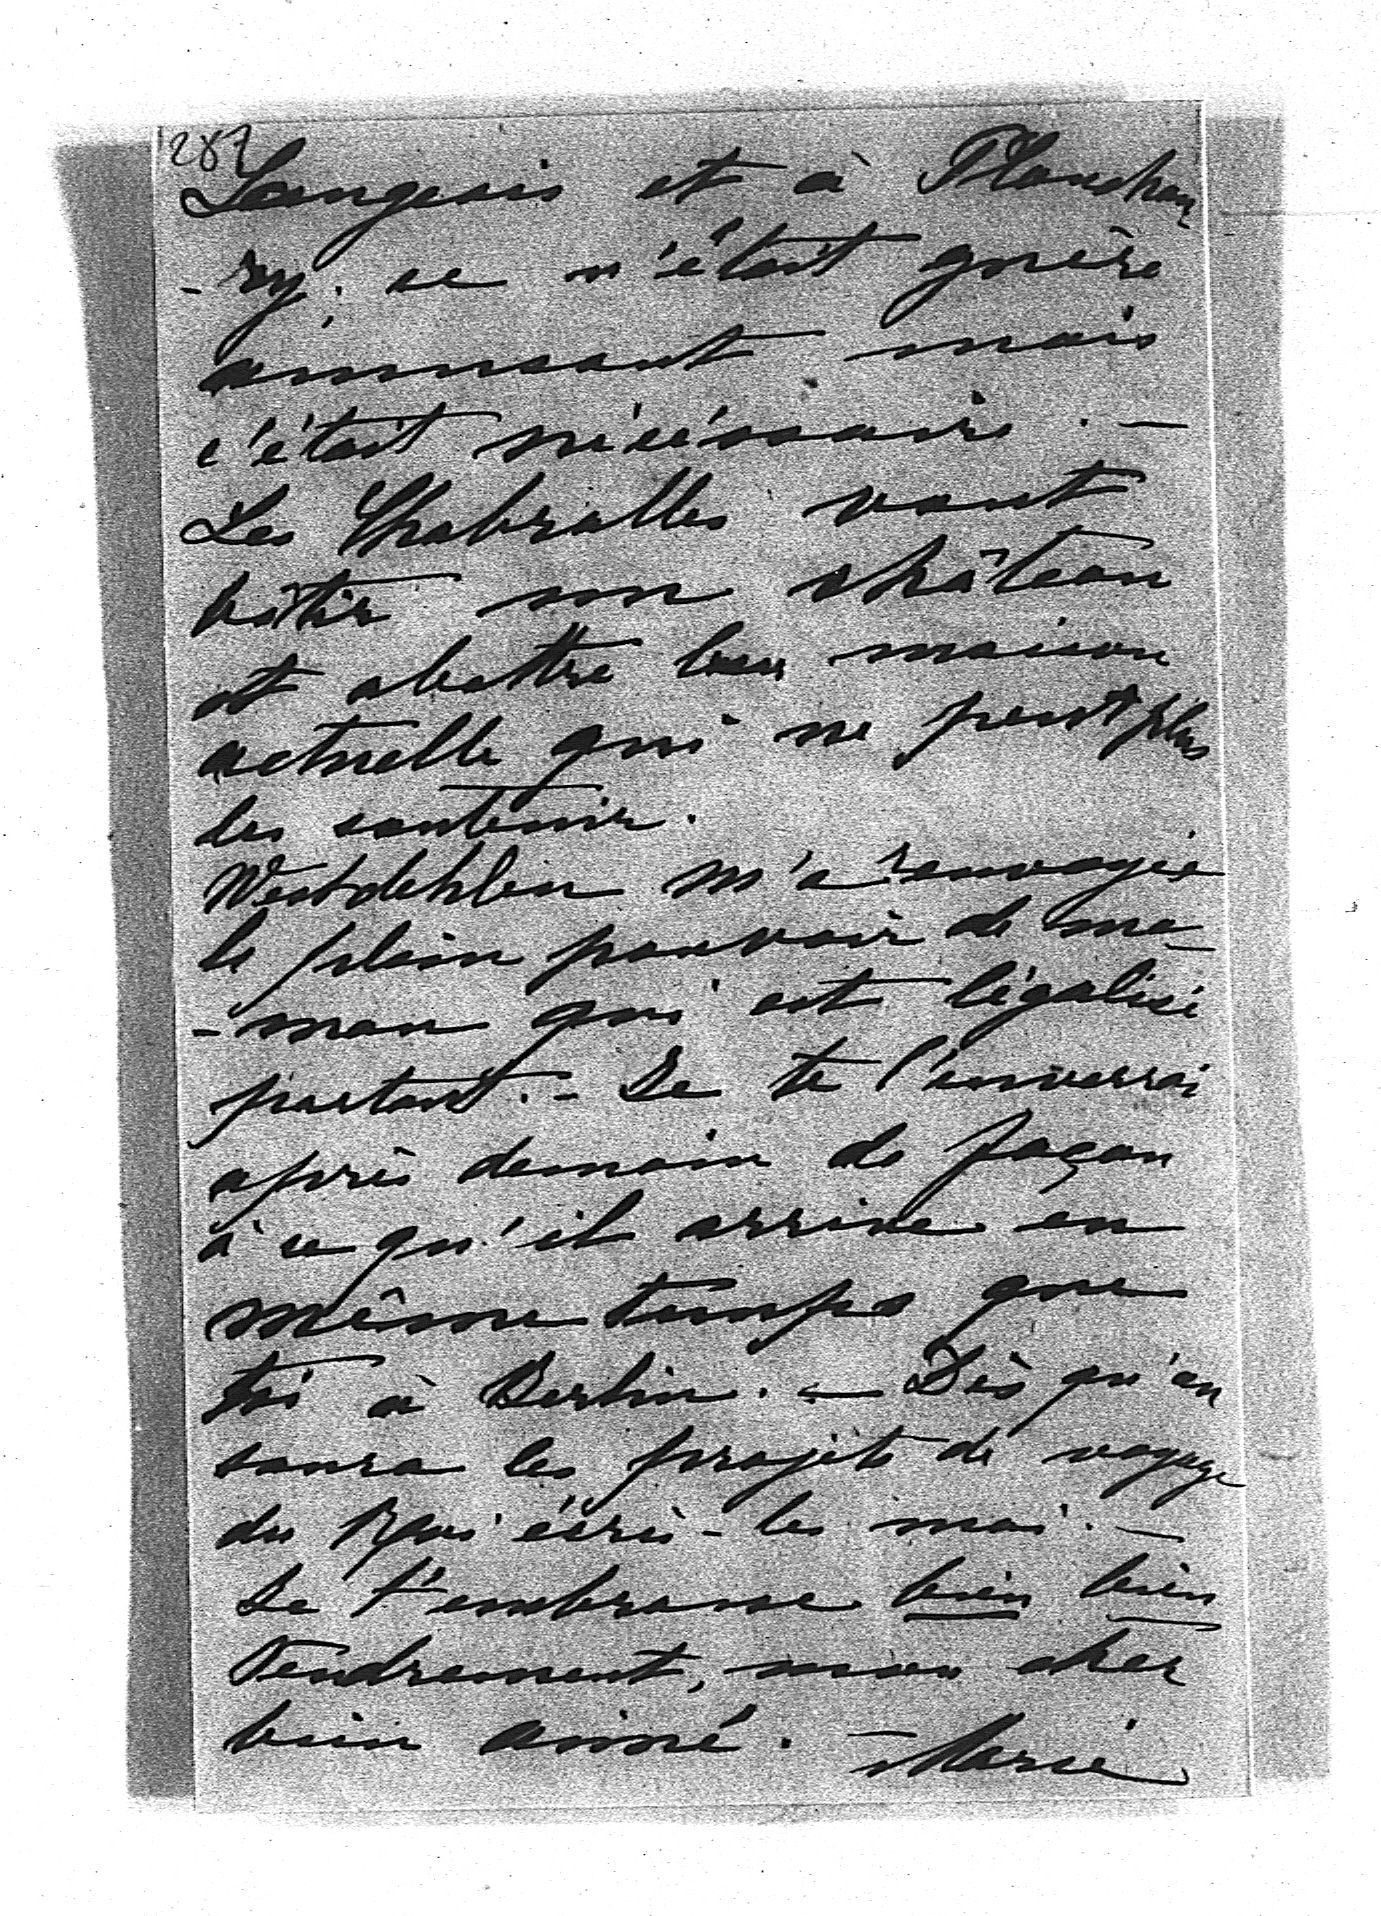 287
Langeais et à Planchou
-ry. ce n'était guère
amusant mais
c'était nécéssaire. —
Les Chabrolles vont
bâtir un château
et abattre leur maison
actuelle qui ne peut plus
les soutenir.
Westdehlen m'a renvoyé
le plein pouvoir de ma-
-man qui est légalisé
partout. - Je te l'enverrai
après demain de façon
à ce qu'il arrive en
même temps que
toi à Berlin. — Dès qu'on
saura les projets de voyage
du Roi écris-les moi. —
Je t'embrasse bien bien
tendrement, mon cher
bien aimé. — Marie